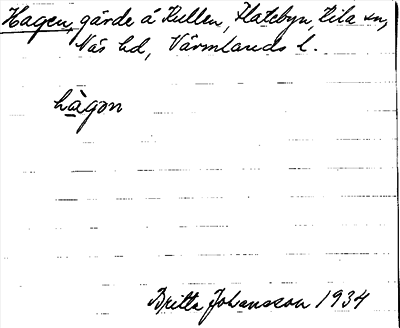 Hagen, gärde å Kullen, Flatebyn, Kila sn,
Näs hd, Värmlands l.
hàgon
Britta Johansson 1934